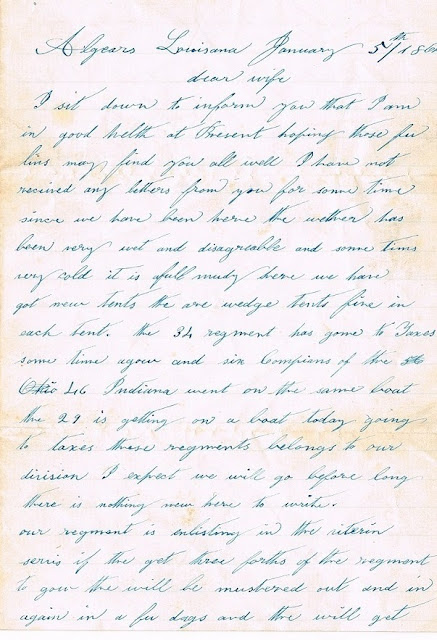 Algears Louisana January 5th/186
dear wife
I sit down to inform you that I am
in good helth at Present hoping those few
lins may find you all well I have not
received any letters from you for some time
since we have been here the wether has
been very wet and disagreable and some tims
very cold it is afull mudy here we have
got new tents the are wedge tents five in
each tent. the 34 regment has gone to Taxes
some time agow and six Compians of the
46 Indiana went on the same boat
the 29 is getting on a boat today going
to taxes these regments belongs to our
division I expect we will go before long
there is nothing new here to write.
our regment is enlisting in the
seris if the get three forths of the regment
to gow the will be mustered out and in
again in a few days and the will get